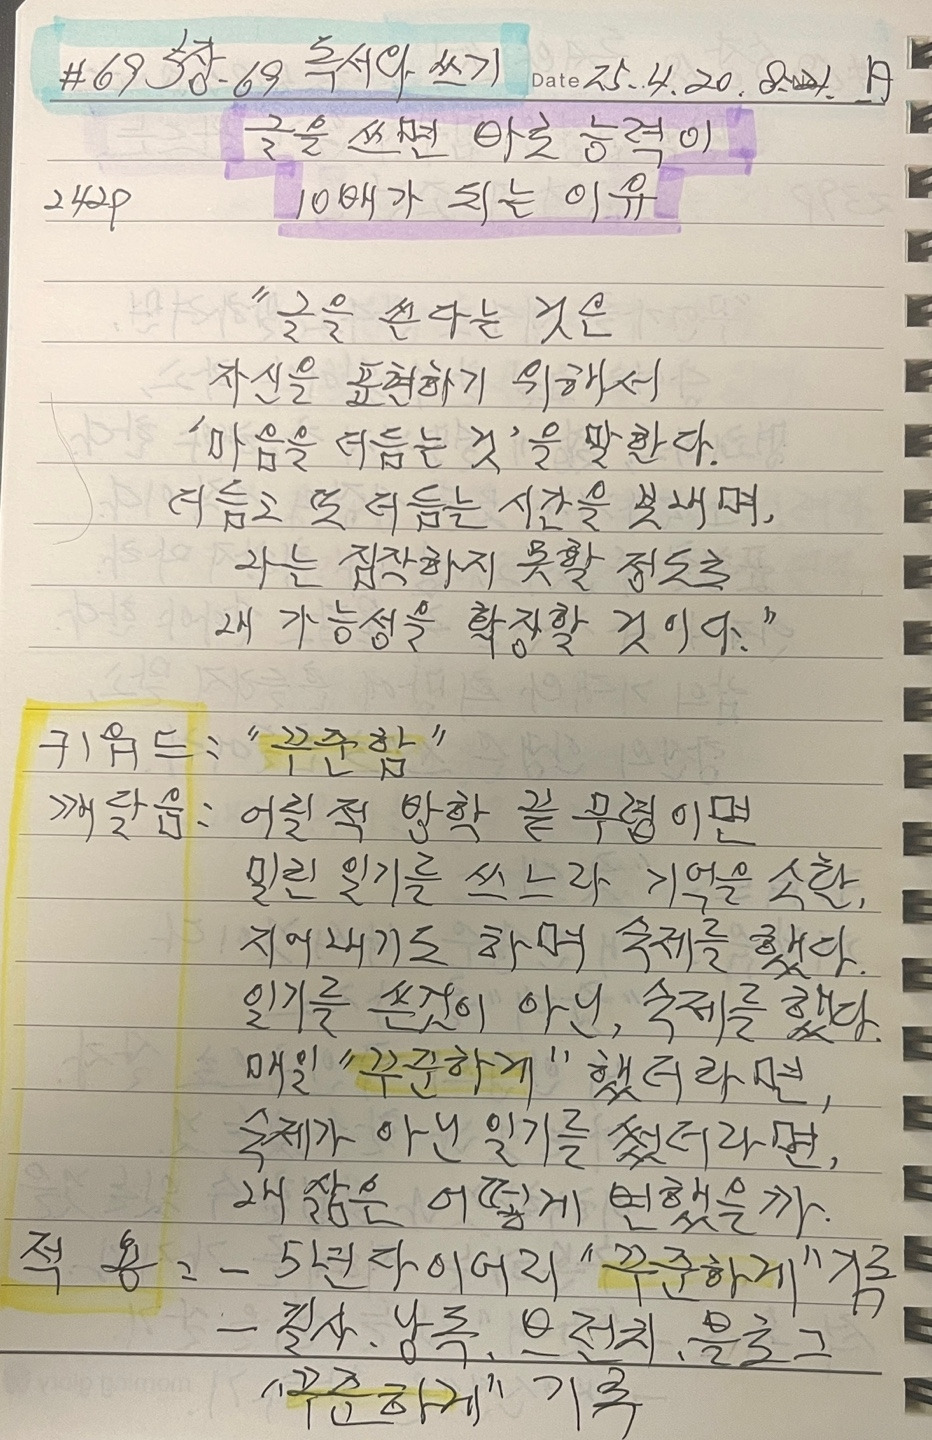 #69 3장-69 독서와 쓰기 Date 25. 4. 20. 日
글을 쓰면 바로 능력이
242p 10배가 되는 이유
"글을 쓴다는 것은
자신을 표현하기 위해서
'마음을 더듬는 것'을 말한다.
더듬고 또 더듬는 시간을 보내며,
나는 짐작하지 못할 정도로
내 가능성을 확장할 것이다."
키워드 : "꾸준함"
깨달음 : 어릴적 방학 끝 무렵이면
밀린 일기를 쓰느라 기억을 소환,
지어내기도 하며 숙제를 했다.
일기를 쓴것이 아닌, 숙제를 했다.
매일 "꾸준하게" 했더라면,
숙제가 아닌 일기를 썼더라면,
내 삶은 어떻게 변했을까.
적용 : - 5년 다이어리 "꾸준하게" 기록
- 필사, 낭독, 블로그
"꾸준하게" 기록